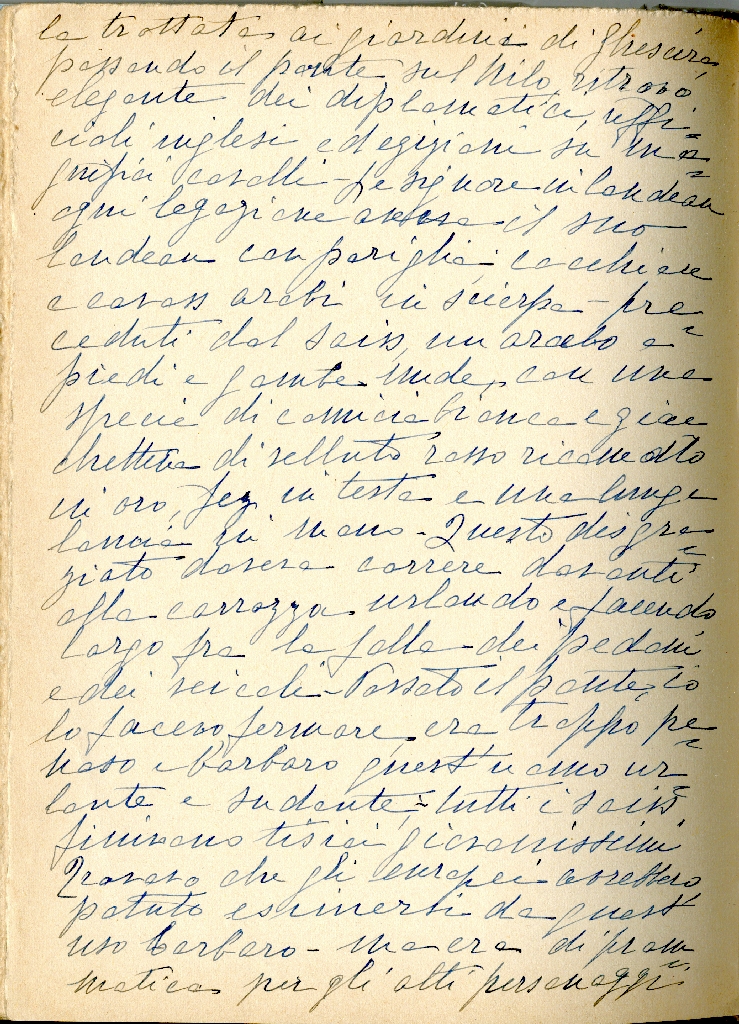 la trottata ai giardini di Ghesireh,
passando il ponte sul Nilo, ritrovo
elegante dei diplomatici, uffi-
ciali inglesi ed egiziani su ma-
gnifici cavalli - le signore in landeau
ogni legazione aveva il suo
landeau con pariglia, cocchiere
e cavass arabi in scierpa - pre
ceduti dal saiss, un arabo a
piedi e gambe nude, con una
specie di camicia bianca e giac
chettina di velluto rosso ricamato
in oro, fez in testa e una lunga
lancia in mano - Questo disgra-
ziato doveva correre davanti
alla carrozza urlando e facendo
largo fra la folla dei pedoni
e dei veicoli - Passato il ponte, io
lo facevo fermare, era troppo pe-
noso e barbaro quest'uomo ur
lante e sudante, - tutti i saiss
finivano tisici giovanissimi
Trovavo che gli europei avrebbero
potuto esimersi da quest'
uso barbaro - ma era di pram
matica per gli alti personaggi -